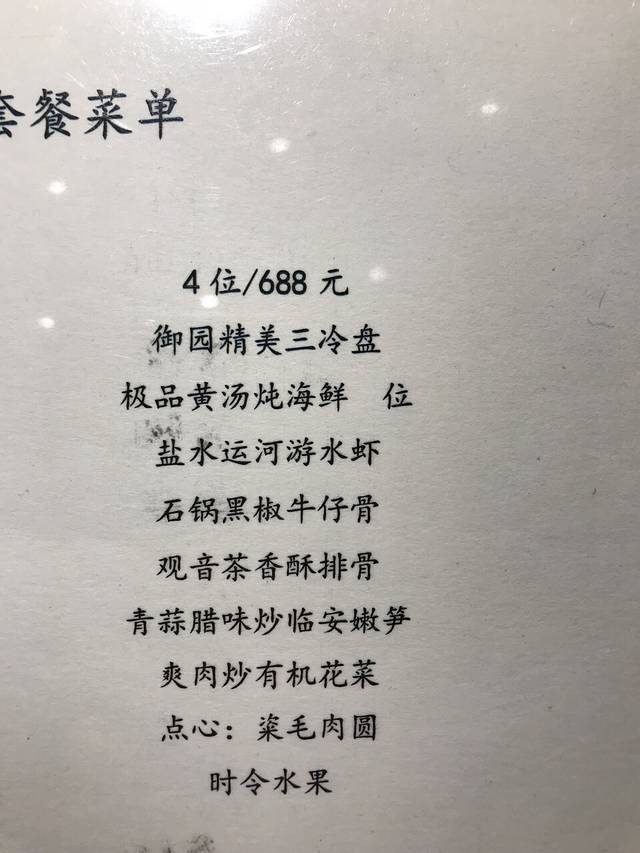 套餐菜单
4位/688元
御园精美三冷盘
极品黄汤炖海鲜 位
盐水运河游水虾
石锅黑椒牛仔骨
观音茶香酥排骨
青蒜腊味炒临安嫩笋
爽肉炒有机花菜
点心：粢毛肉圆
时令水果